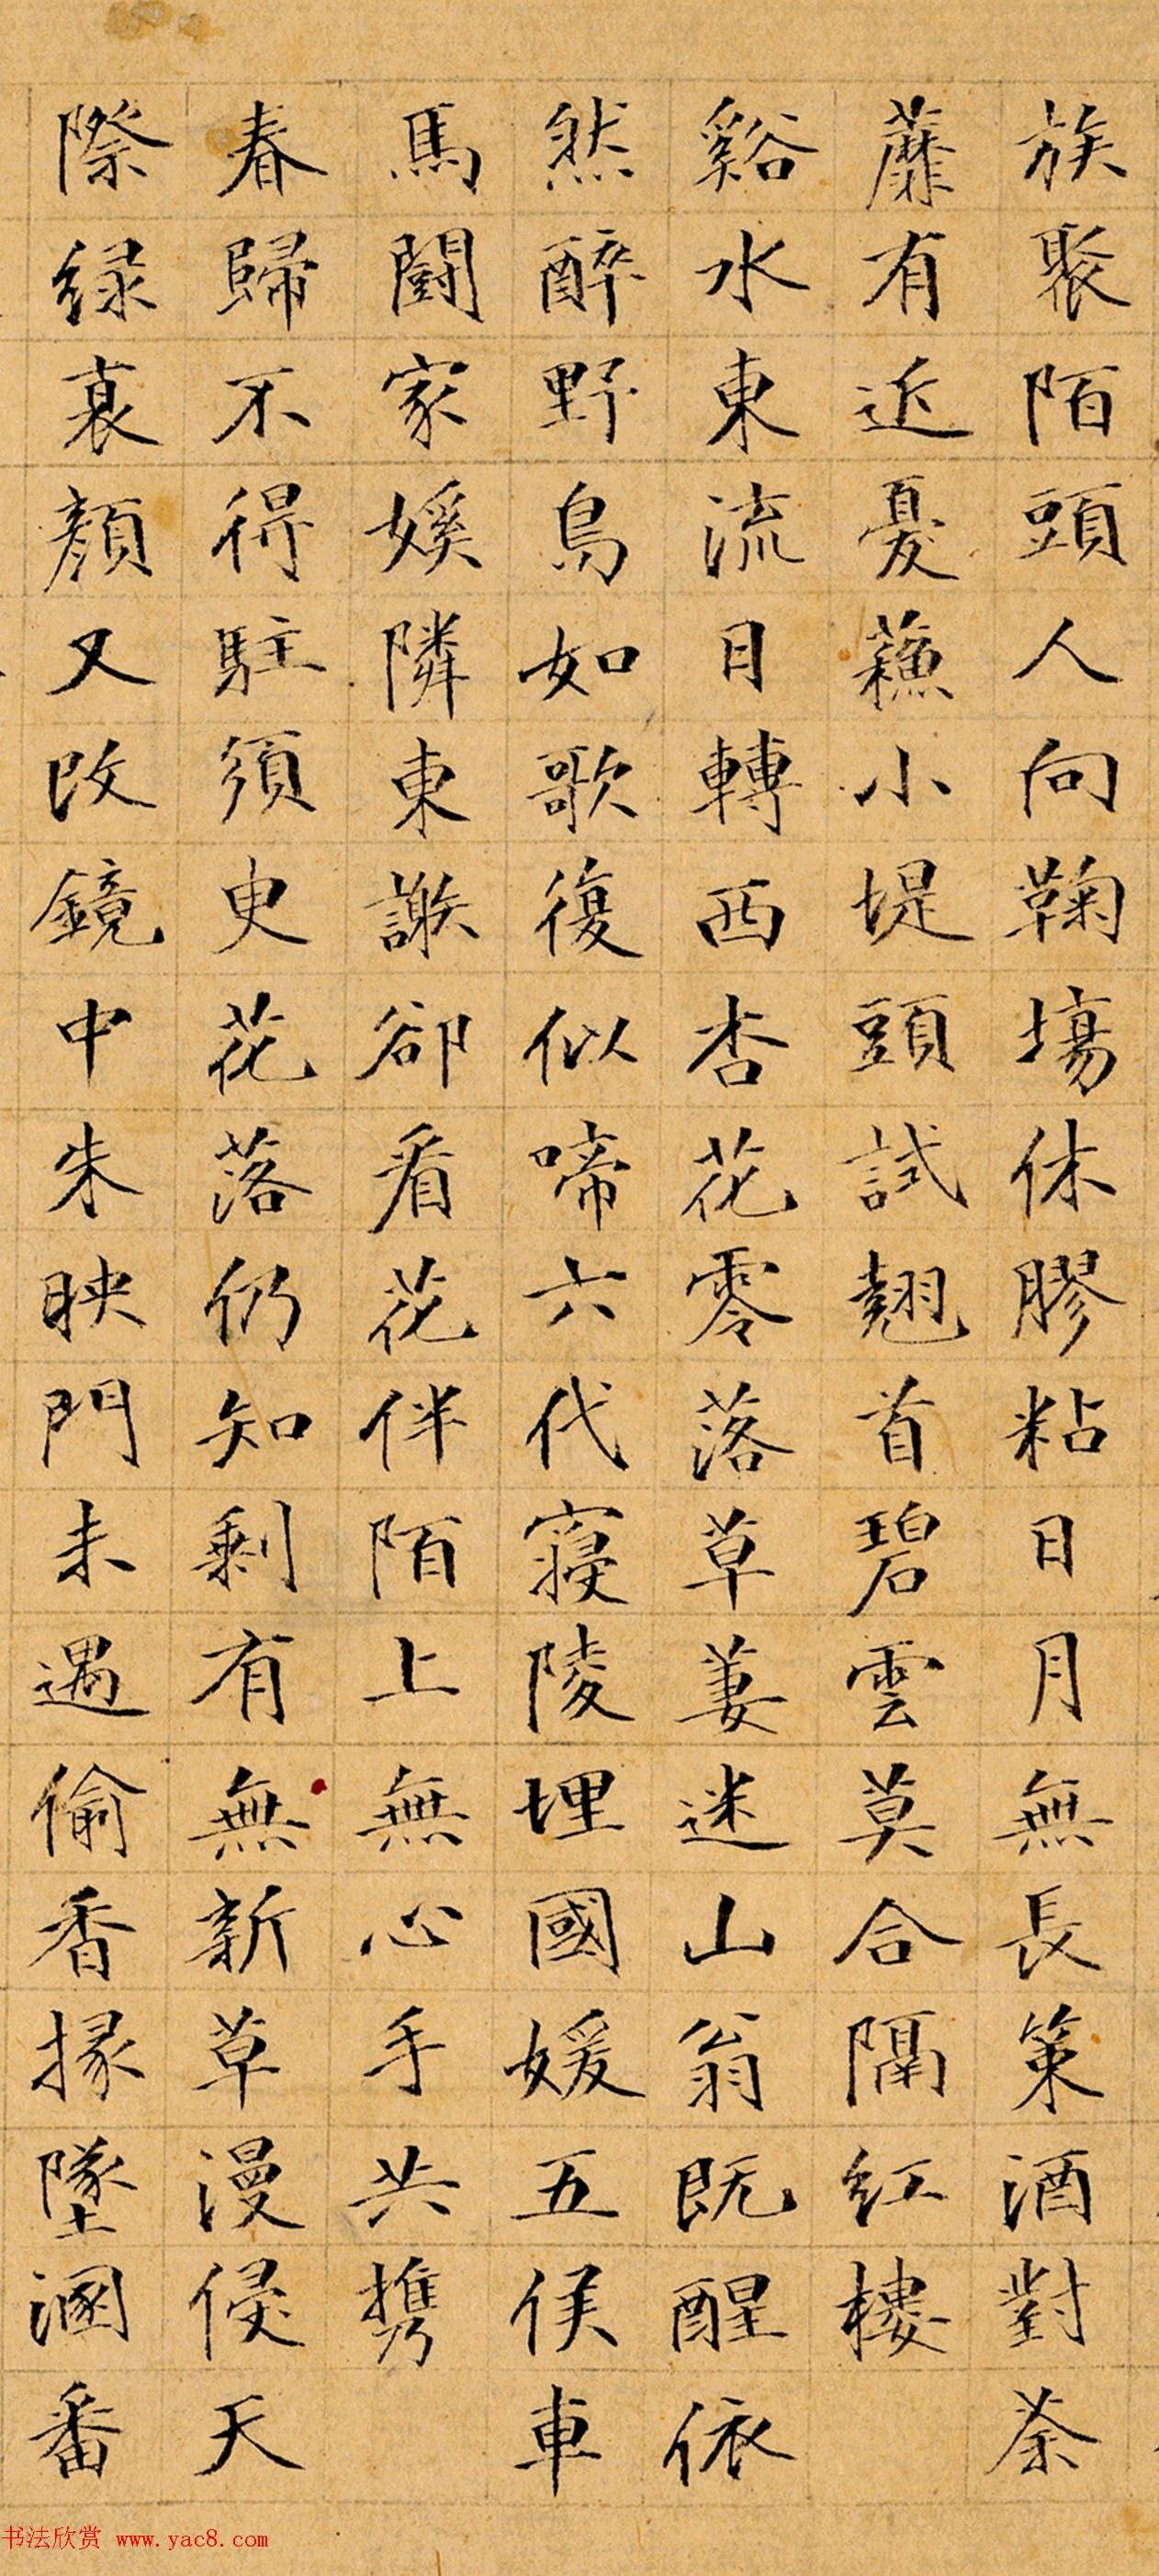 族聚陌頭人向鞠場休膠粘日月無長策酒對荼
蘼有近憂蘓小堤頭試翹首碧雲莫合隔紅樓
谿水東流日轉西杏花零落草萋迷山翁既醒依
然醉野鳥如歌復似啼六代寢陵埋國媛五侯車
馬鬬家媛隣東謝卻看花伴陌上無心手共携
春歸不得駐須臾花落仍知剩有無新草漫侵天
際緑衰顔又改鏡中朱映門未遇偷香掾墜溷番
书法欣赏 www.yac8.com